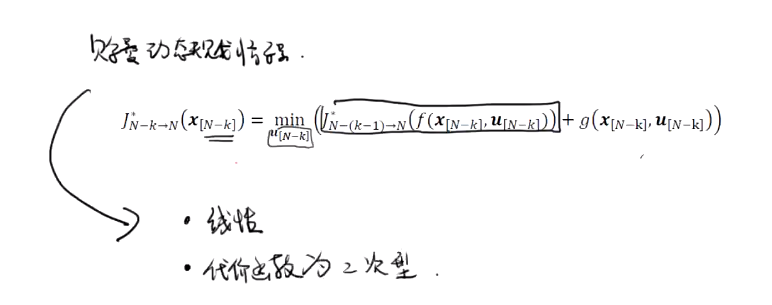 贝尔曼动态规划方程.
J*_{N−k→N}(x_{[N−k]}) = min_{u_{[N−k]}} (J*_{N−(k−1)→N}(f(x_{[N−k]}, u_{[N−k]})) + g(x_{[N−k]}, u_{[N−k]}))
• 线性
• 代价函数为二次型.